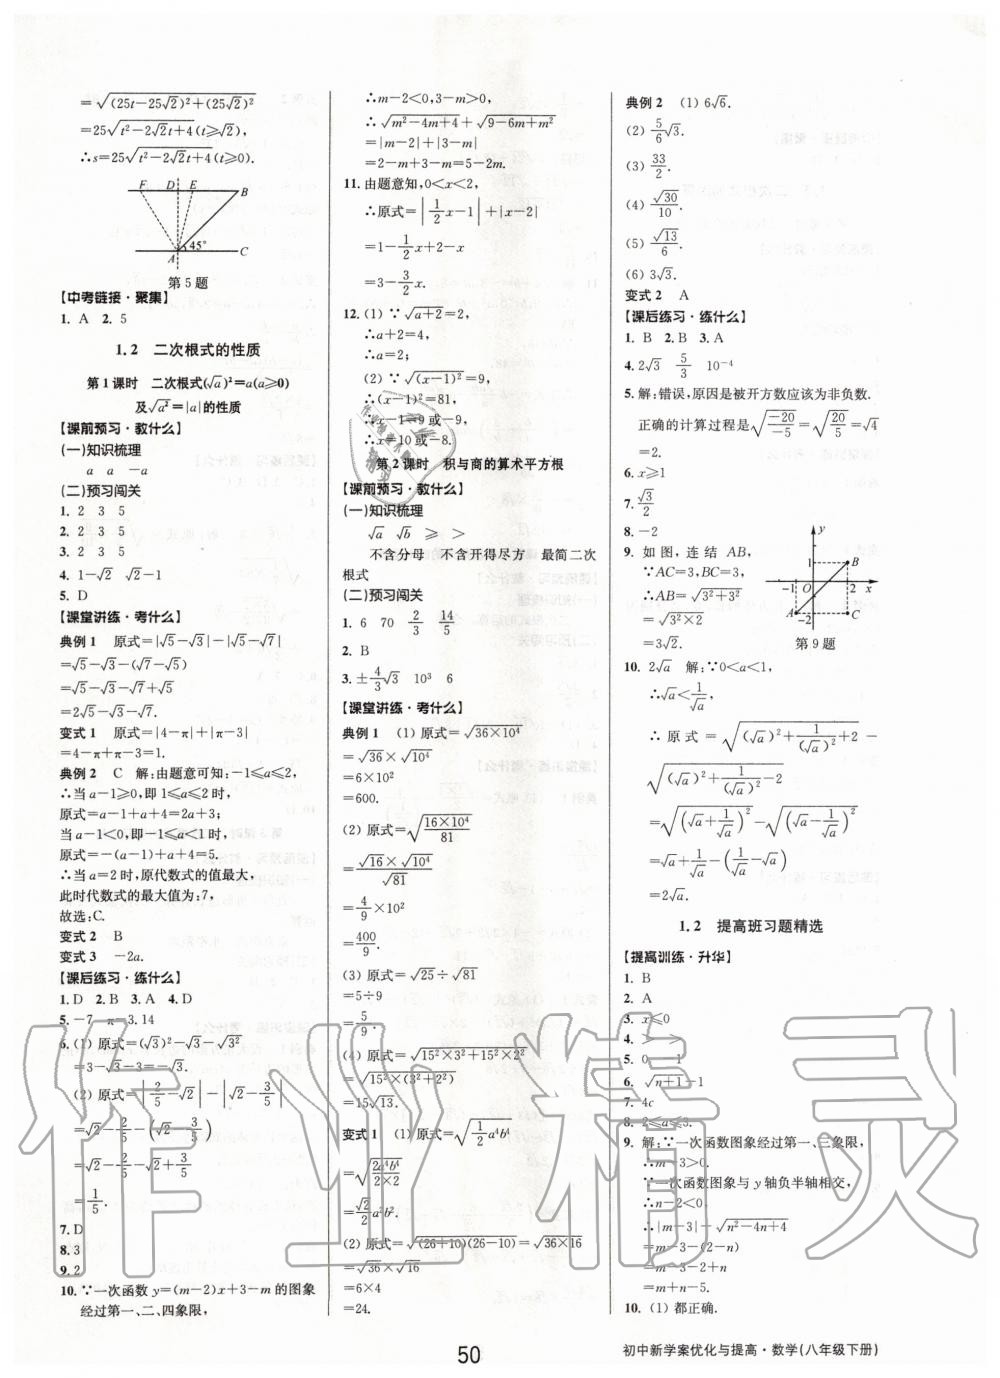 =√((25t-25√2)²+(25√2)²)
=25√(t²-2√2t+4)(t≥√2),
∴s=25√(t²-2√2t+4)(t≥0).
F D E B
45°
A C
第5题
【中考链接·聚集】
1. A 2. 5
1.2 二次根式的性质
第1课时 二次根式(√a)²=a(a≥0)
及√a²=|a|的性质
【课前预习·教什么】
(一)知识梳理
a a -a
(二)预习闯关
1. 2 3 5
2. 2 3 5
3. 2 3 5
4. 1-√2 √2-1
5. D
【课堂讲练·考什么】
典例1 原式=|√5-√3|-|√5-√7|
=√5-√3-(√7-√5)
=√5-√3-√7+√5
=2√5-√3-√7.
变式1 原式=|4-π|+|π-3|
=4-π+π-3=1.
典例2 C 解:由题意可知:-1≤a≤2,
∴当a-1≥0,即1≤a≤2时,
原式=a-1+a+4=2a+3;
当a-1<0,即-1≤a<1时,
原式=-(a-1)+a+4=5.
∴当a=2时,原代数式的值最大,
此时代数式的最大值为:7,
故选:C.
变式2 B
变式3 -2a.
【课后练习·练什么】
1. D 2. B 3. A 4. D
5. -7 π-3.14
6. (1) 原式=(√3)²-√3-√3²
=3-√3-3=-√3.
(2) 原式=|2/5-√2|-|√2-3/5|
=√2-2/5-(√2-3/5)
=√2-2/5-√2+3/5
=1/5.
7. D
8. 3
9. 2
10. ∵一次函数y=(m-2)x+3-m的图象
经过第一、二、四象限,
∴m-2<0,3-m>0,
∴√(m²-4m+4)+√(9-6m+m²)
=|m-2|+|3-m|
=2-m+3-m=5-2m.
11. 由题意知,0<x<2,
∴原式=|1/2x-1|+|x-2|
=1-1/2x+2-x
=3-3/2x.
12. (1) ∵√(a+2)=2,
∴a+2=4,
∴a=2;
(2) ∵√((x-1)²)=9,
∴(x-1)²=81,
∴x-1=9或-9,
∴x=10或-8.
第2课时 积与商的算术平方根
【课前预习·教什么】
(一)知识梳理
√a √b ≥ >
不含分母 不含开得尽方 最简二次
根式
(二)预习闯关
1. 6 70 2/3 14/5
2. B
3. ±4/3√3 10³ 6
【课堂讲练·考什么】
典例1 (1) 原式=√(36×10⁴)
=√36×√10⁴
=6×10²
=600.
(2) 原式=√(16×10⁴/81)
=√16×√10⁴/√81
=4/9×10²
=400/9.
(3) 原式=√25÷√81
=5÷9
=5/9.
(4) 原式=√(15²×3²+15²×2²)
=√(15²×(3²+2²))
=15√13.
变式1 (1) 原式=√(1/2a⁴b⁴)
=√(2a⁴b⁴/2×2)
=√2/2a²b².
(2) 原式=√((26+10)(26-10))=√(36×16)
=√36×√16
=6×4
=24.
典例2 (1) 6√6.
(2) 5/6√3.
(3) 33/2.
(4) √30/10.
(5) √13/6.
(6) 3√3.
变式2 A
【课后练习·练什么】
1. B 2. B 3. A
4. 2√3 5/3 10⁻⁴
5. 解:错误,原因是被开方数应该为非负数.
正确的计算过程是√(-20/-5)=√(20/5)=√4
=2.
6. x≥1
7. √3/2
8. -2
9. 如图,连结AB,
∵AC=3,BC=3,
∴AB=√(3²+3²)
=√(3²×2)
=3√2.
y
1 B
-1 O 2 x
A -2 C
第9题
10. 2√a 解:∵0<a<1,
∴√a<1/√a,
∴原式=√((√a)²+1/(√a)²+2)-
√((√a)²+1/(√a)²-2)
=√((√a+1/√a)²)-√((√a-1/√a)²)
=√a+1/√a-(1/√a-√a)
=2√a.
1.2 提高班习题精选
【提高训练·升华】
1. B
2. A
3. x≤0
4. > >
5. 0 -1
6. √(n+1)-1
7. 4c
8. 2≤a≤3.
9. 解:∵一次函数图象经过第一、三象限,
∴m-3>0.
∵一次函数图象与y轴负半轴相交,
∴n-2<0,
∴|m-3|-√(n²-4n+4)
=m-3-√((n-2)²)
=m-3-2+n
=m+n-5.
10. (1) 都正确.
50
初中新学案优化与提高·数学(八年级下册)
作业精灵